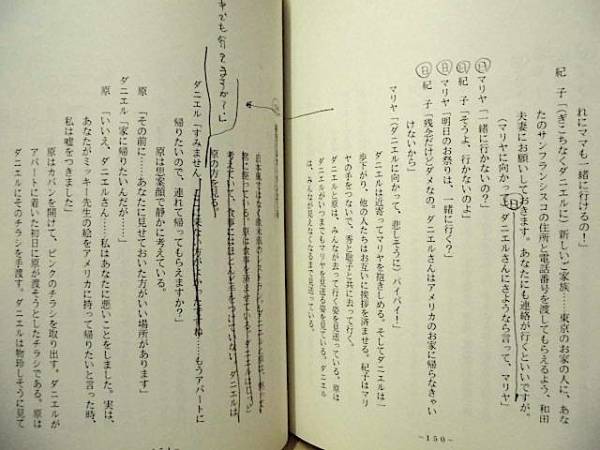 れにママも一緒に行けるの！」
紀　子「（ぎこちなくダニエルに）新しいご家族……東京のお家の人に、あな
たのサンフランシスコの住所と電話番号を渡してもらえるよう、和田
夫妻にお願いしておきます。あなたにも連絡が行くといいですが。
（マリヤに向かって）ダニエルさんにさようなら言って、マリヤ」
マリヤ「一緒に行かないの？」
紀　子「そうよ、行かないのよ」
マリヤ「明日のお祭りは、一緒に行く？」
紀　子「残念だけどダメなの。ダニエルさんはアメリカのお家に帰らなきゃい
けないから」
マリヤ「（ダニエルに向かって、悲しそうに）バイバイ！」
ダニエルは近寄ってマリヤを抱きしめる。そしてダニエルは一
歩下がり、他の人たちはお互いに挨拶を済ませる。紀子はマリ
ヤの手をつないで、秀と聡子と共に去って行く。
ダニエルと原は、みんなが去って行く姿を見送っている。原は
ダニエルがいつまでもマリヤの姿を見送っている。ダニエル
は、みんなが見えなくなるまで見送っている。
～150～
考えていて、食事にはほとんど手をつけていない。ダニエルは
原の方を見る。
ダニエル「すみません。もうアパートに
帰りたいので、連れて帰ってもらえますか？」
原は思案顔で静かに考えている。
原　「その前に……あなたに見せておいた方がいい場所があります」
ダニエル「家に帰りたいんだが……」
原　「いいえ、ダニエルさん……私はあなたに悪いことをしました。実は、
あなたがミッキー先生の絵をアメリカに持って帰りたいと言った時、
私は嘘をつきました」
原はカバンを開けて、ピンクのチラシを取り出す。ダニエルが
アパートに着いた初日に原が渡そうとしたチラシである。原は
ダニエルにそのチラシを手渡す。ダニエルは物珍しそうに見て